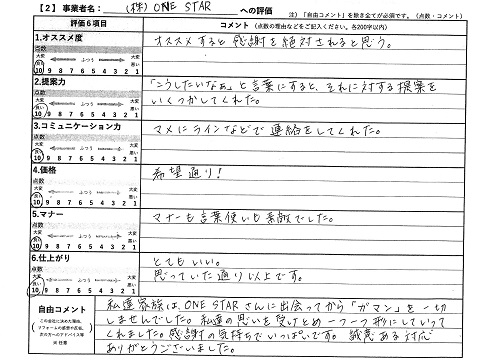 【2】事業者名： (株) ONE STAR への評価
注）「自由コメント」を除き全てが必須です。（点数・コメント）
評価6項目 コメント（点数の理由などをご記入ください。各200字以内）
1.オススメ度
点数
大変良い ふつう 大変悪い
10 9 8 7 6 5 4 3 2 1
オススメすると感謝を絶対されると思う。
2.提案力
点数
大変良い ふつう 大変悪い
10 9 8 7 6 5 4 3 2 1
「こうしたいなぁ」と言葉にすると、それに対する提案を
いくつかしてくれた。
3.コミュニケーション力
点数
大変良い ふつう 大変悪い
10 9 8 7 6 5 4 3 2 1
マメにラインなどで連絡をしてくれた。
4.価格
点数
大変良い ふつう 大変悪い
10 9 8 7 6 5 4 3 2 1
希望通り！
5.マナー
点数
大変良い ふつう 大変悪い
10 9 8 7 6 5 4 3 2 1
マナーも言葉使いも素敵でした。
6.仕上がり
点数
大変良い ふつう 大変悪い
10 9 8 7 6 5 4 3 2 1
とてもいい。
思っていた通り以上です。
自由コメント
この会社に決めた理由、
リフォームの感想や反省、
次の方へのアドバイス等
※任意
私達家族は、ONE STARさんに出会ってから「ガマン」を一切
しませんでした。私達の思いを受けとめ一つ一つ形にしていって
くれました。感謝の気持ちでいっぱいです。誠意ある対応
ありがとうございました。